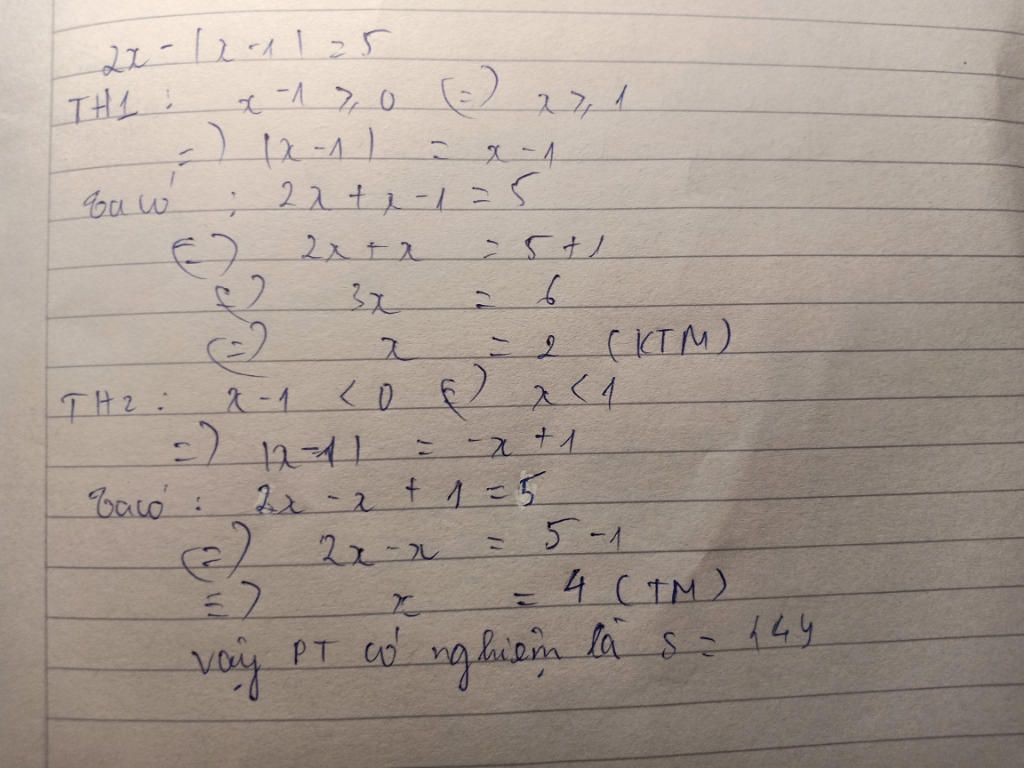 2x - |x - 1| = 5
TH1 : x - 1 ⩾ 0 (=) x ⩾ 1
=) |x - 1| = x - 1
Ta có : 2x + x - 1 = 5
(=) 2x + x = 5 + 1
(=) 3x = 6
(=) x = 2 (KTM)
TH2 : x - 1 < 0 (=) x < 1
=) |x - 1| = -x + 1
Ta có : 2x - x + 1 = 5
(=) 2x - x = 5 - 1
=) x = 4 (TM)
vậy PT có nghiệm là S = {4}